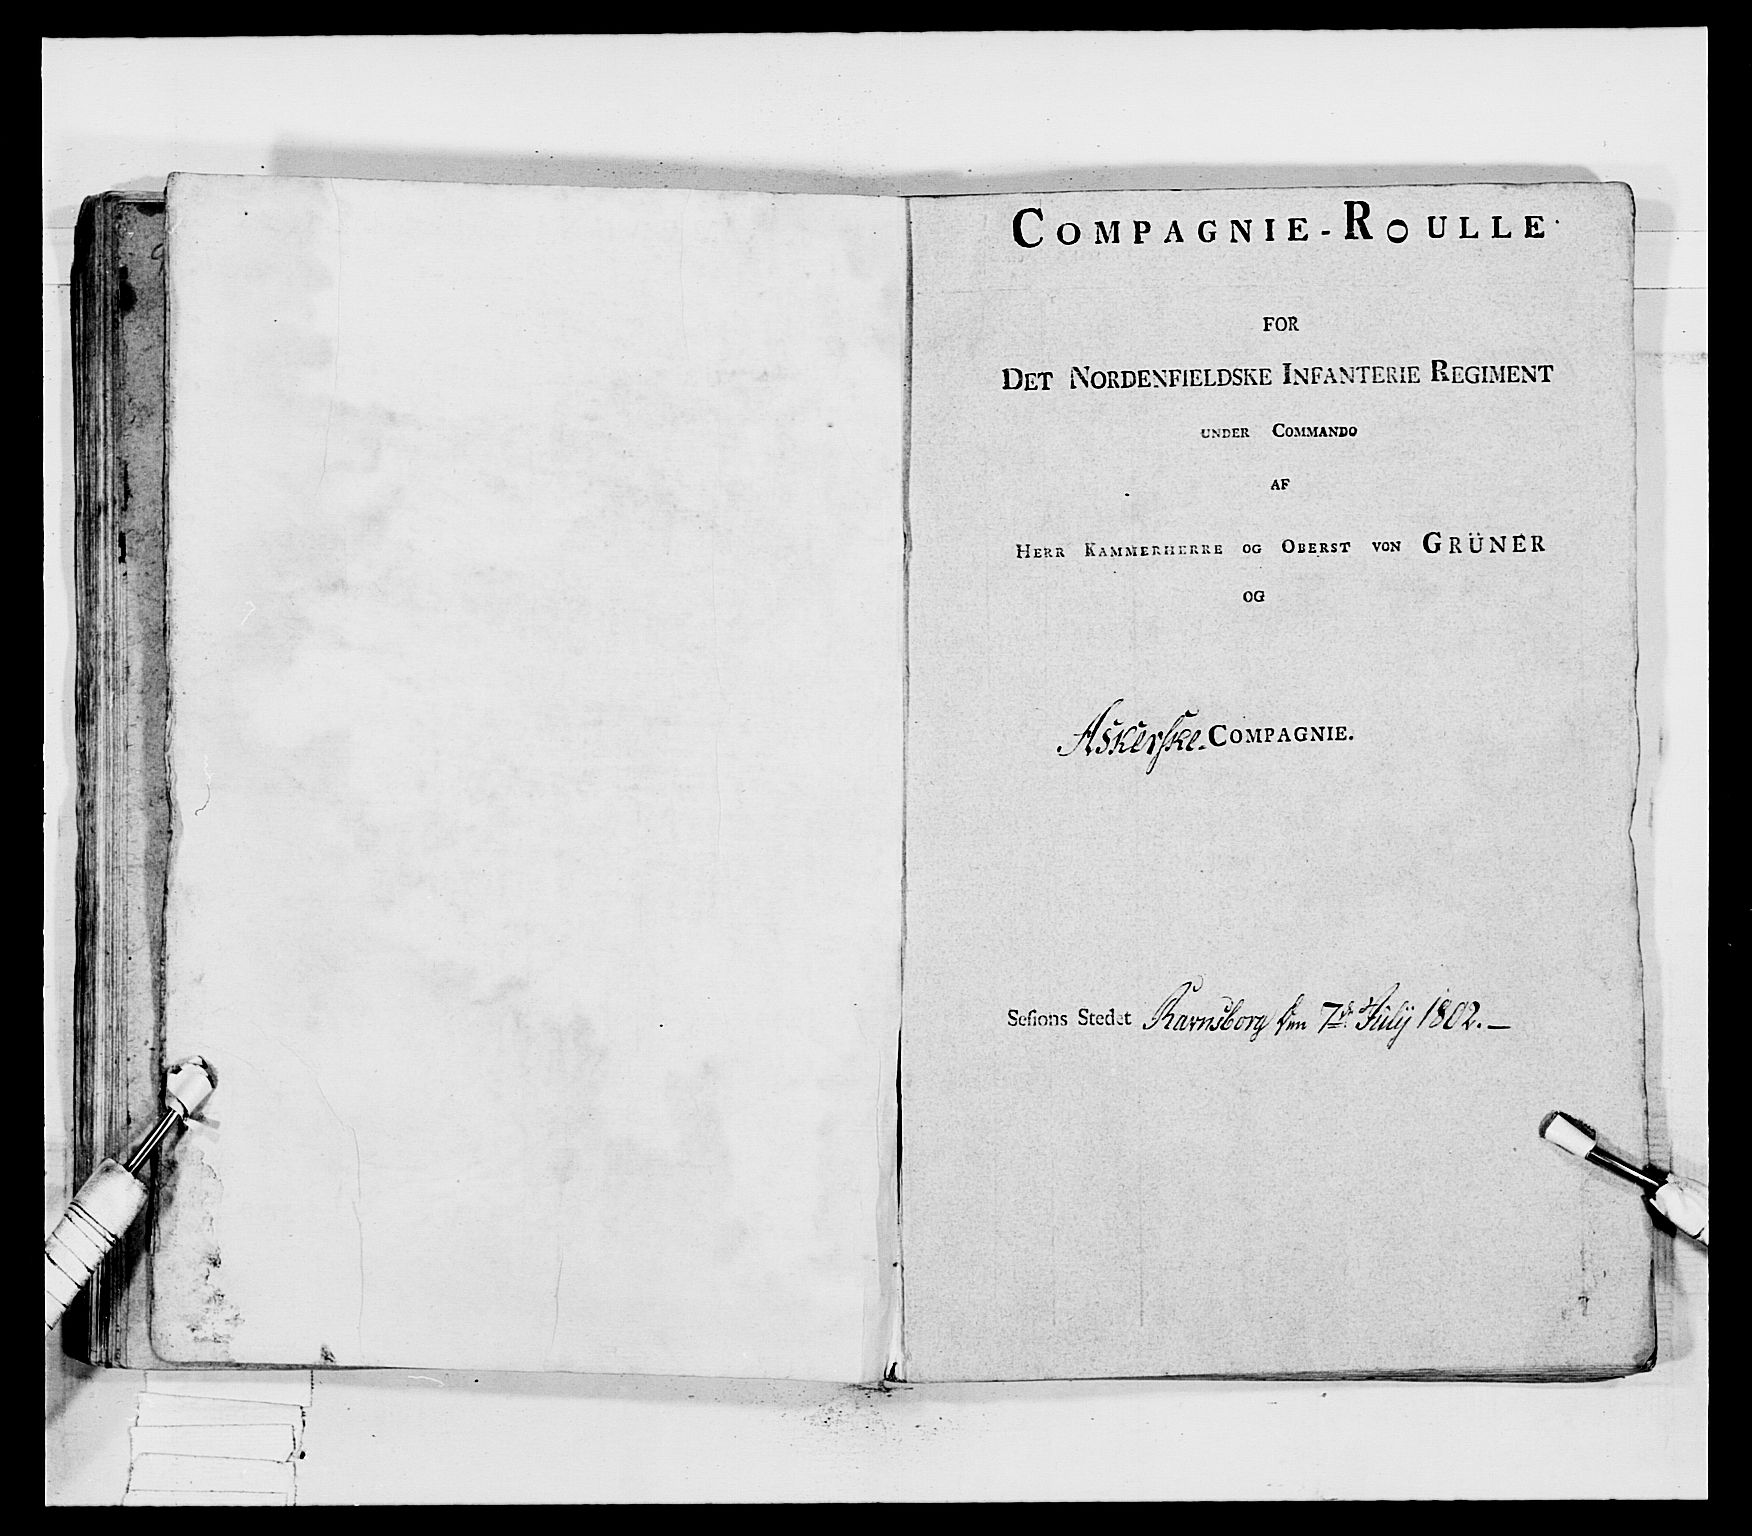 COMPAGNIE-ROULLE
FOR
DET NORDENFIELDSKE INFANTERIE REGIMENT
UNDER COMMANDO
AF
HERR KAMMERHERRE OG OBERST VON GRÜNER
OG
Askerske COMPAGNIE.
Sesions Stedet Ravnsborg den 7de July 1802.